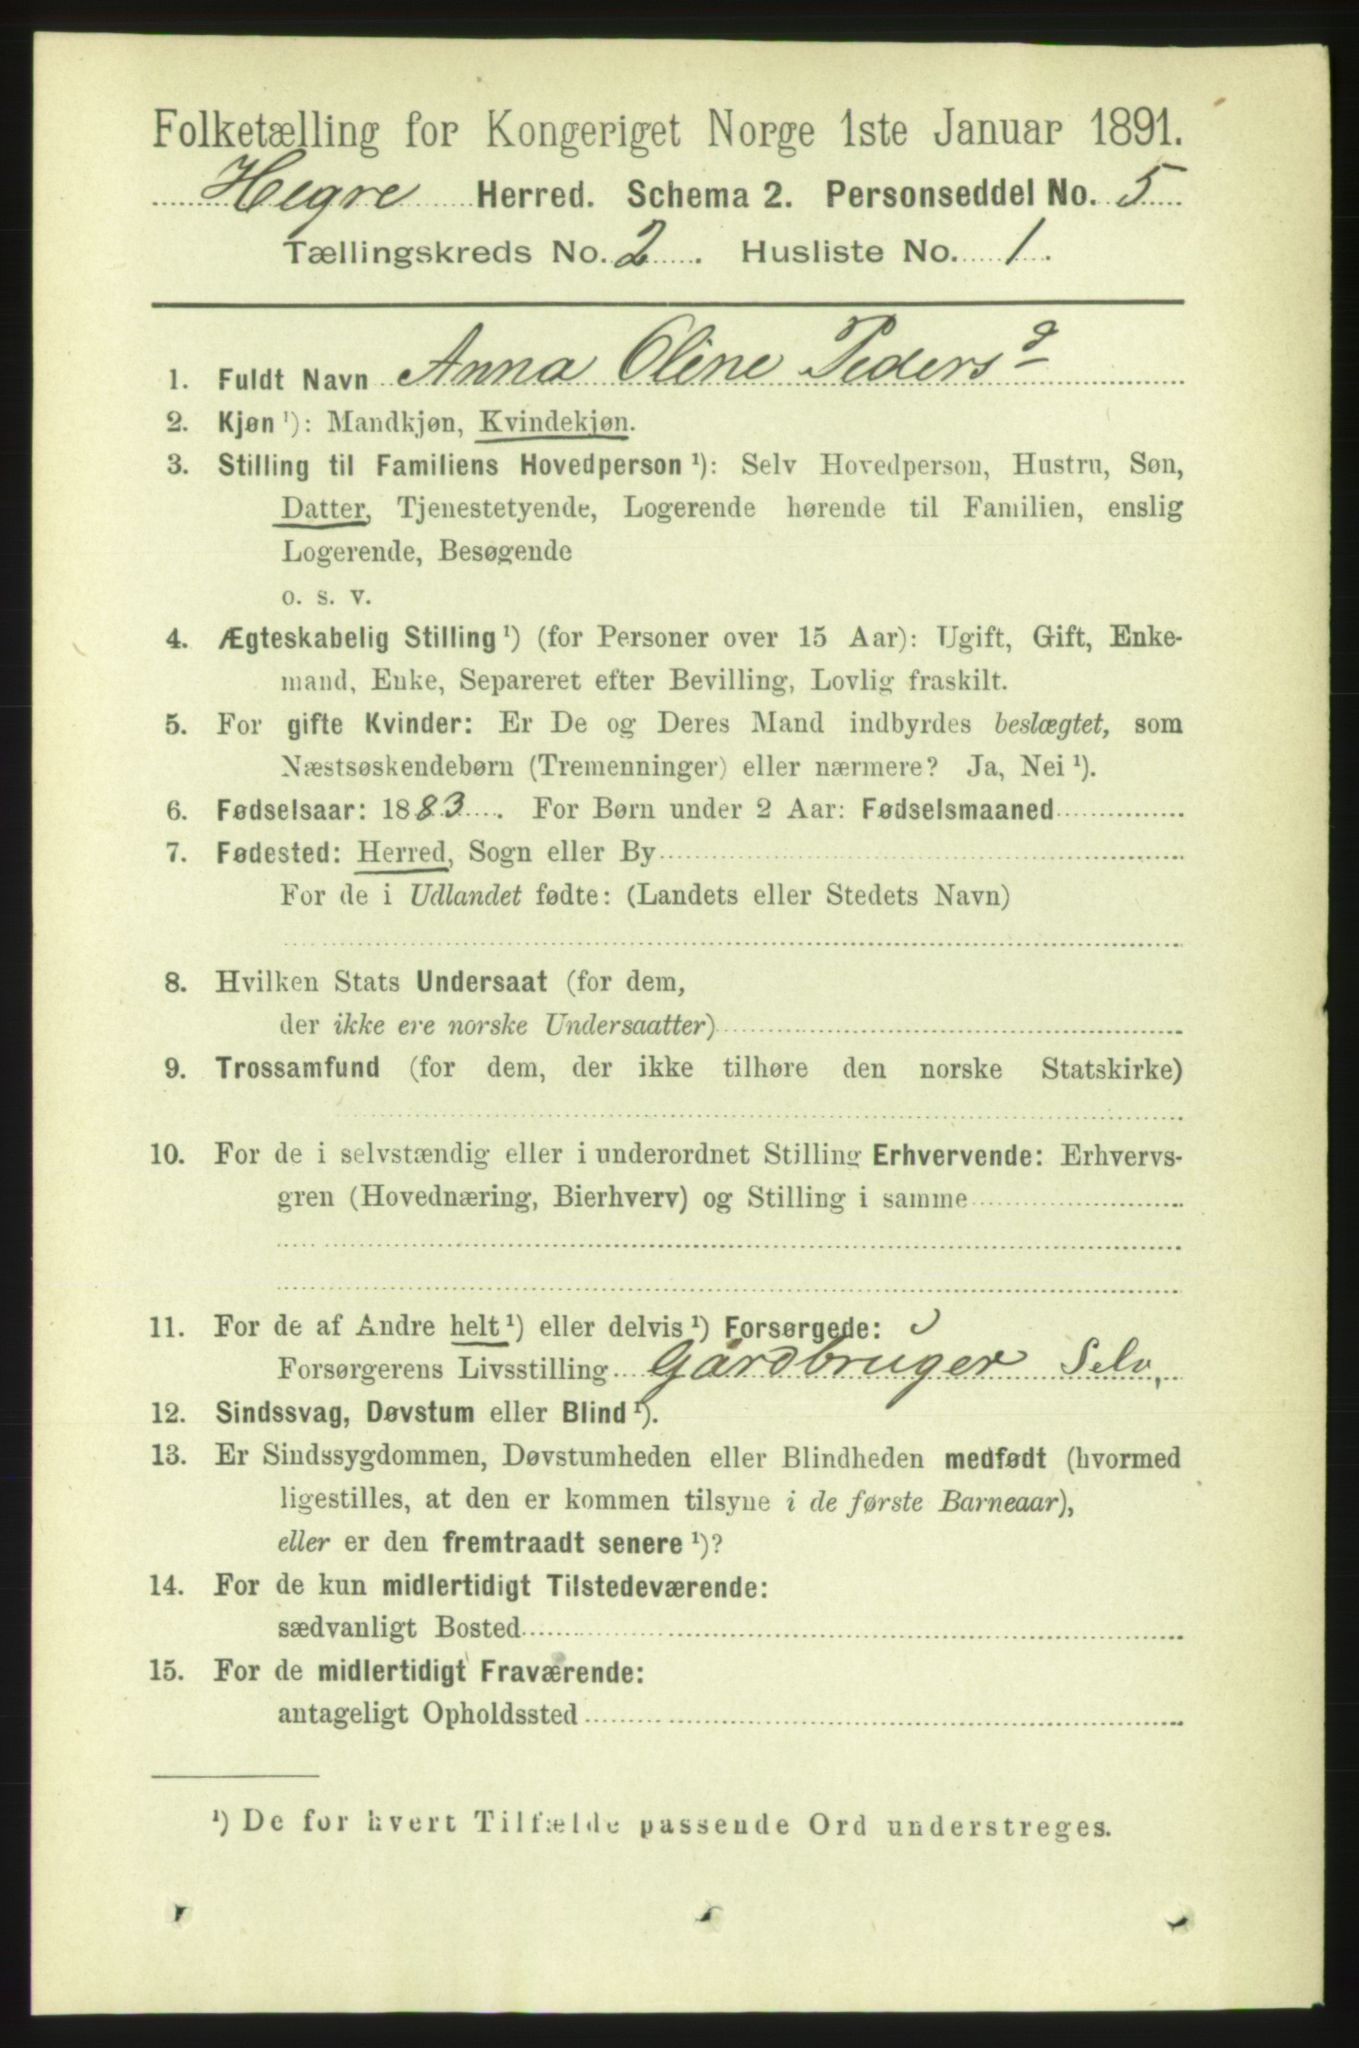 Folketælling for Kongeriget Norge 1ste Januar 1891.
Hegre Herred. Schema 2. Personseddel No. 5
Tællingskreds No. 2. Husliste No. 1.
1. Fuldt Navn Anna Oline Peders d
2. Kjøn ¹): Mandkjøn, Kvindekjøn.
3. Stilling til Familiens Hovedperson ¹): Selv Hovedperson, Hustru, Søn,
Datter, Tjenestetyende, Logerende hørende til Familien, enslig
Logerende, Besøgende
o. s. v.
4. Ægteskabelig Stilling ¹) (for Personer over 15 Aar): Ugift, Gift, Enke-
mand, Enke, Separeret efter Bevilling, Lovlig fraskilt.
5. For gifte Kvinder: Er De og Deres Mand indbyrdes beslægtet, som
Næstsøskendebørn (Tremenninger) eller nærmere? Ja, Nei ¹).
6. Fødselsaar: 1883. For Børn under 2 Aar: Fødselsmaaned
7. Fødested: Herred, Sogn eller By
For de i Udlandet fødte: (Landets eller Stedets Navn)
8. Hvilken Stats Undersaat (for dem,
der ikke ere norske Undersaatter)
9. Trossamfund (for dem, der ikke tilhøre den norske Statskirke)
10. For de i selvstændig eller i underordnet Stilling Erhvervende: Erhvervs-
gren (Hovednæring, Bierhverv) og Stilling i samme
11. For de af Andre helt ¹) eller delvis ¹) Forsørgede:
Forsørgerens Livsstilling Gårdbruger Selv,
12. Sindssvag, Døvstum eller Blind ¹).
13. Er Sindssygdommen, Døvstumheden eller Blindheden medfødt (hvormed
ligestilles, at den er kommen tilsyne i de første Barneaar),
eller er den fremtraadt senere ¹)?
14. For de kun midlertidigt Tilstedeværende:
sædvanligt Bosted
15. For de midlertidigt Fraværende:
antageligt Opholdssted
¹) De for hvert Tilfælde passende Ord understreges.